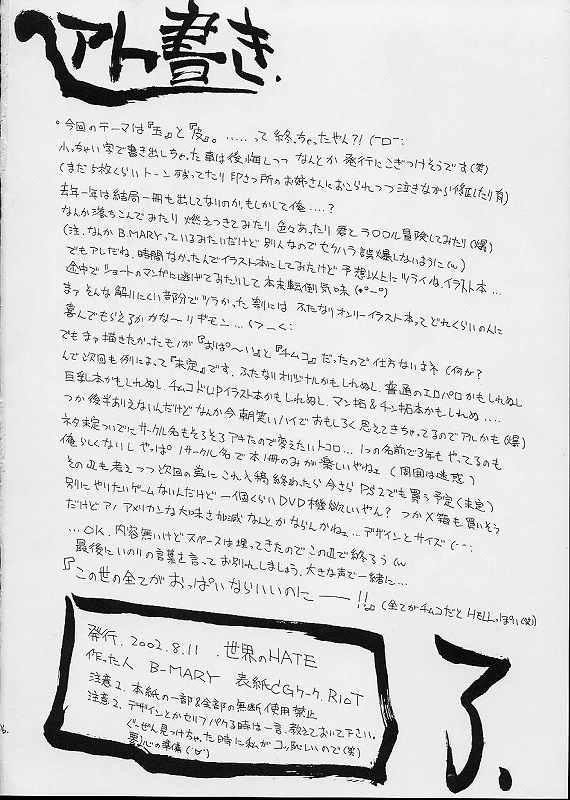 アト書き.
。今回のテーマは『玉』と『皮』。……って終っちゃったやん?! (ーロー;
小っちゃい字で書き出しちゃった事は後悔しつつ なんとか発行にこぎつけそうです(笑)
(まだ5枚くらいトーン残ってたり 印さつ所のお姉さんにおこられつつ泣きながら修正したり有)
去年一年は結局一冊も出してないのか、もしかして俺……?
なんか落ちこんでみたり 燃えつきてみたり 色々あったり 君とラ〇〇ル冒険してみたり(爆)
(注.なんかB.MARYっているみたいだけど 別人なのでセクハラ誤爆しないように(w)
でもアレだね、時間なかったんでイラスト本にしてみたけど 予想以上にツライね.イラスト本…
途中でショートのマンガに逃げてみたりして 本末転倒気味
まァ そんな解りにくい部分でツラかった割には ふたなりオンリーイラスト本って どれくらいの人に
喜んでもらえるかかな〜りギモン…
でもまァ描きたかったもノが『おぱ〜い』と『チムコ』だったので 仕方ないよネ (何が?
んで次回も例によって『未定』です. ふたなりオリジナルかもしれぬし. 普通のエロパロかもしれぬし
巨乳本かもしれぬし チムコドUPイラスト本かもしれぬし. マン拓&チン拓本かもしれぬ….
つか後半ありえないんだけど なんか今朝笑いハイで おもしろく思えてきちゃってるのでアレかも(爆)
ネタ未定ついでにサークル名もそろそろアキたので変えたいトコロ… 1つの名前で3年もやってるのも
俺らしくないし やっぱ1サークル名で本1冊のみが楽しいやねェ (周囲は迷惑)
その辺も考えつつ次回の為に これ入稿終わったら 今さらPS2でも買う予定(未定)
別にやりたいゲームなんだけど 一個くらいDVD機欲しいやん? つか X箱も買いそう
だけど ア! アメリカンな大味さ加減なんとかならんかねェ…デザインとサイズ (ーー;
…OK. 内容無いけどスペースは埋ってきたのでこの辺で終ろう(w
最後にいのりの言葉を言ってお別れしましょう. 大きな声で一緒に…
『この世の全てがおっぱいならいいのに――!!』(全てがチムコだとHELLっぽい(笑))
発行. 2002.8.11 . 世界のHATE
作った人 B-MARY 表紙CGワーク. RIOT
注意1. 本紙の一部&全部の無断使用禁止
注意2. デザインとかセルフパクる時は一言. 教えておいて下さい.
ぐーぜん見つけちゃった時に私がコッ恥しいので(笑)
了.